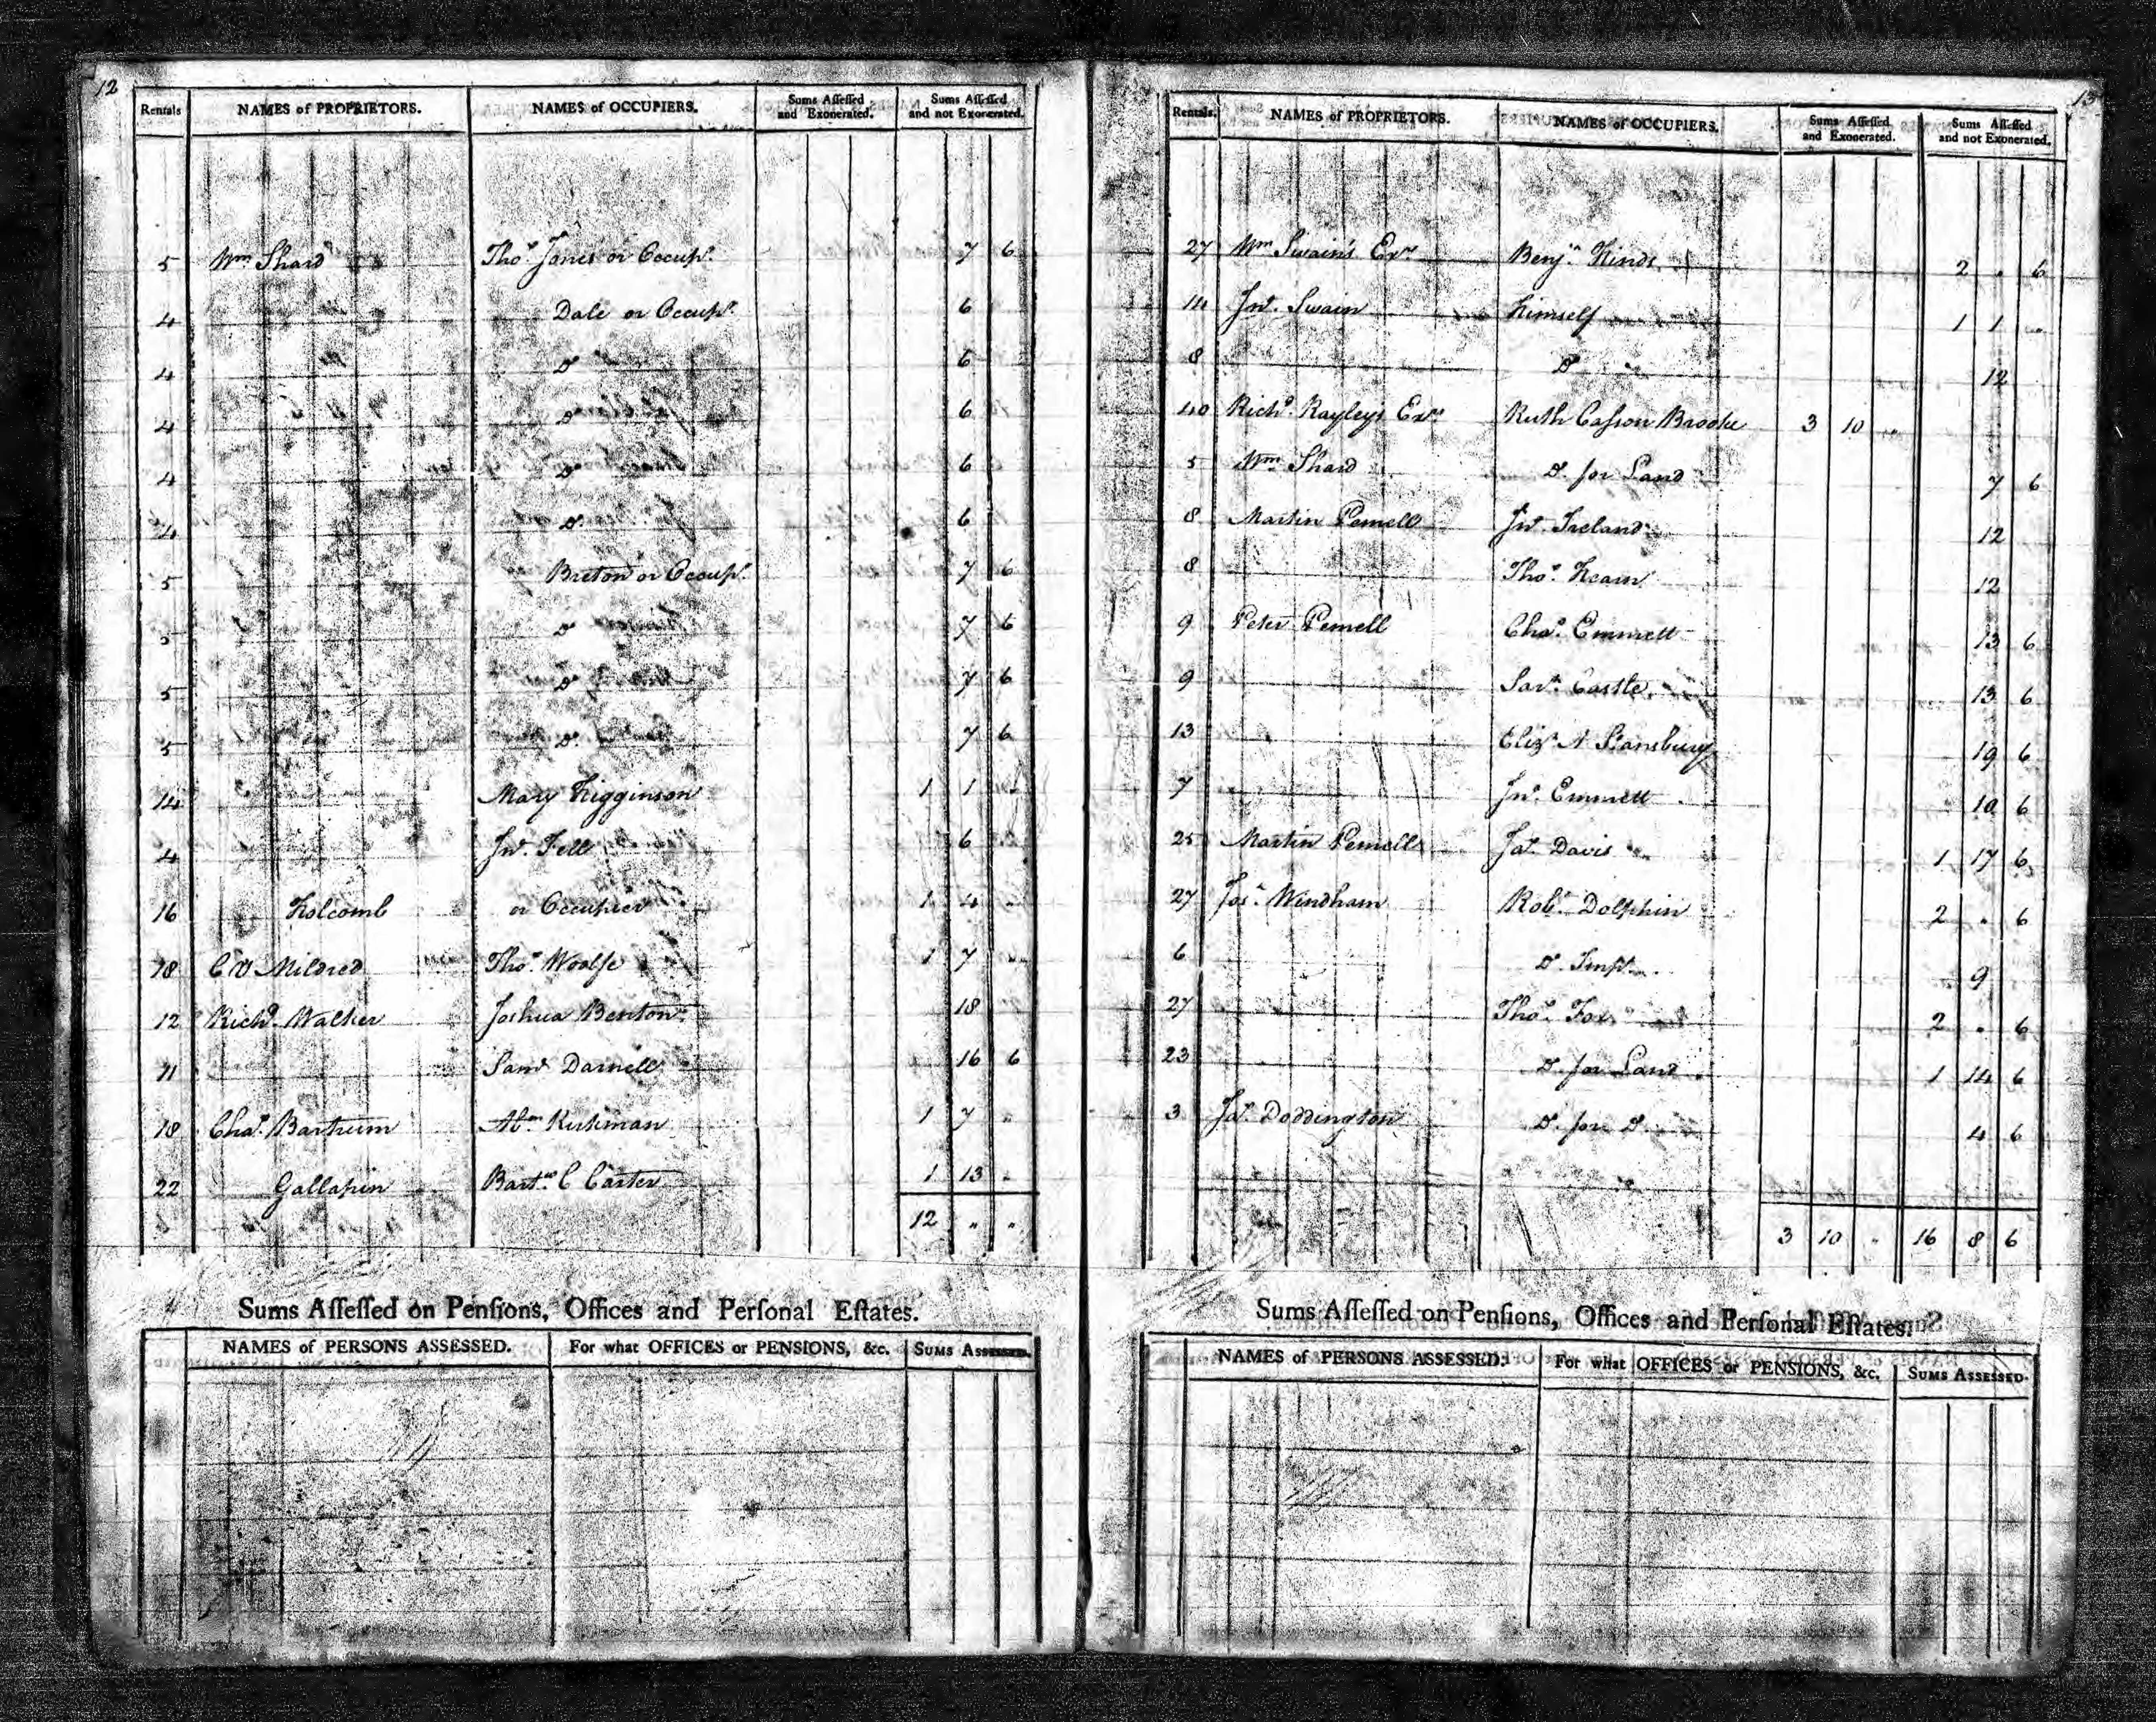 12
Rentals NAMES of PROPRIETORS. NAMES of OCCUPIERS. Sums Aſſeſſed and Exonerated. Sums Aſſeſſed and not Exonerated.
5 Wm Shard Thos. Jones or Occupr. 7 6
4 Dale or Occupr. 6
4 Do 6
4 Do 6
4 Do 6
4 Do 6
5 Breton or Occupr. 7 6
5 Do 7 6
5 Do 7 6
5 Do 7 6
14 Mary Higginson 1 1 "
4 Jno. Fell 6
16 Holcomb or Occupier 1 4 "
18 C V Mildred Thos. Woolfe 1 7 "
12 Richd. Walker Joshua Benton 18
11 Saml Darnell 16 6
18 Chas. Bartrum Abm Kirkman 1 7 "
22 Gallapin Bartw C Carter 1 13 "
12 " "
Sums Aſſeſſed on Penſions, Offices and Perſonal Eſtates.
NAMES of PERSONS ASSESSED. For what OFFICES or PENSIONS, &c. SUMS ASSESSED.
13
Rentals. NAMES of PROPRIETORS. NAMES of OCCUPIERS. Sums Aſſeſſed and Exonerated. Sums Aſſeſſed and not Exonerated.
27 Wm Swain's Exrs Benjn. Hinds 2 " 6
14 Jno. Swain Himself 1 1 "
8 Do 12
40 Richd. Rayley's Exrs Ruth Caſson Brooke 3 10 "
5 Wm Shard Do. for Land 7 6
8 Martin Pernell Jno. Ireland 12
8 Thos. Hearn 12
9 Peter Pernell Chas. Emmett 13 6
9 Sarh. Castle 13 6
13 Elizh A Stansbury 19 6
7 Jno. Emmett 10 6
25 Martin Pernell Jas. Davis 1 17 6
27 Josh. Windham Robt. Dolphin 2 " 6
6 Do. 9
27 Thos. Fox 2 " 6
23 Do. for Land 1 14 6
3 Jas. Doddington Do. for Do. 4 6
3 10 " 16 8 6
Sums Aſſeſſed on Penſions, Offices and Perſonal Eſtates.
NAMES of PERSONS ASSESSED. For what OFFICES or PENSIONS, &c. SUMS ASSESSED.